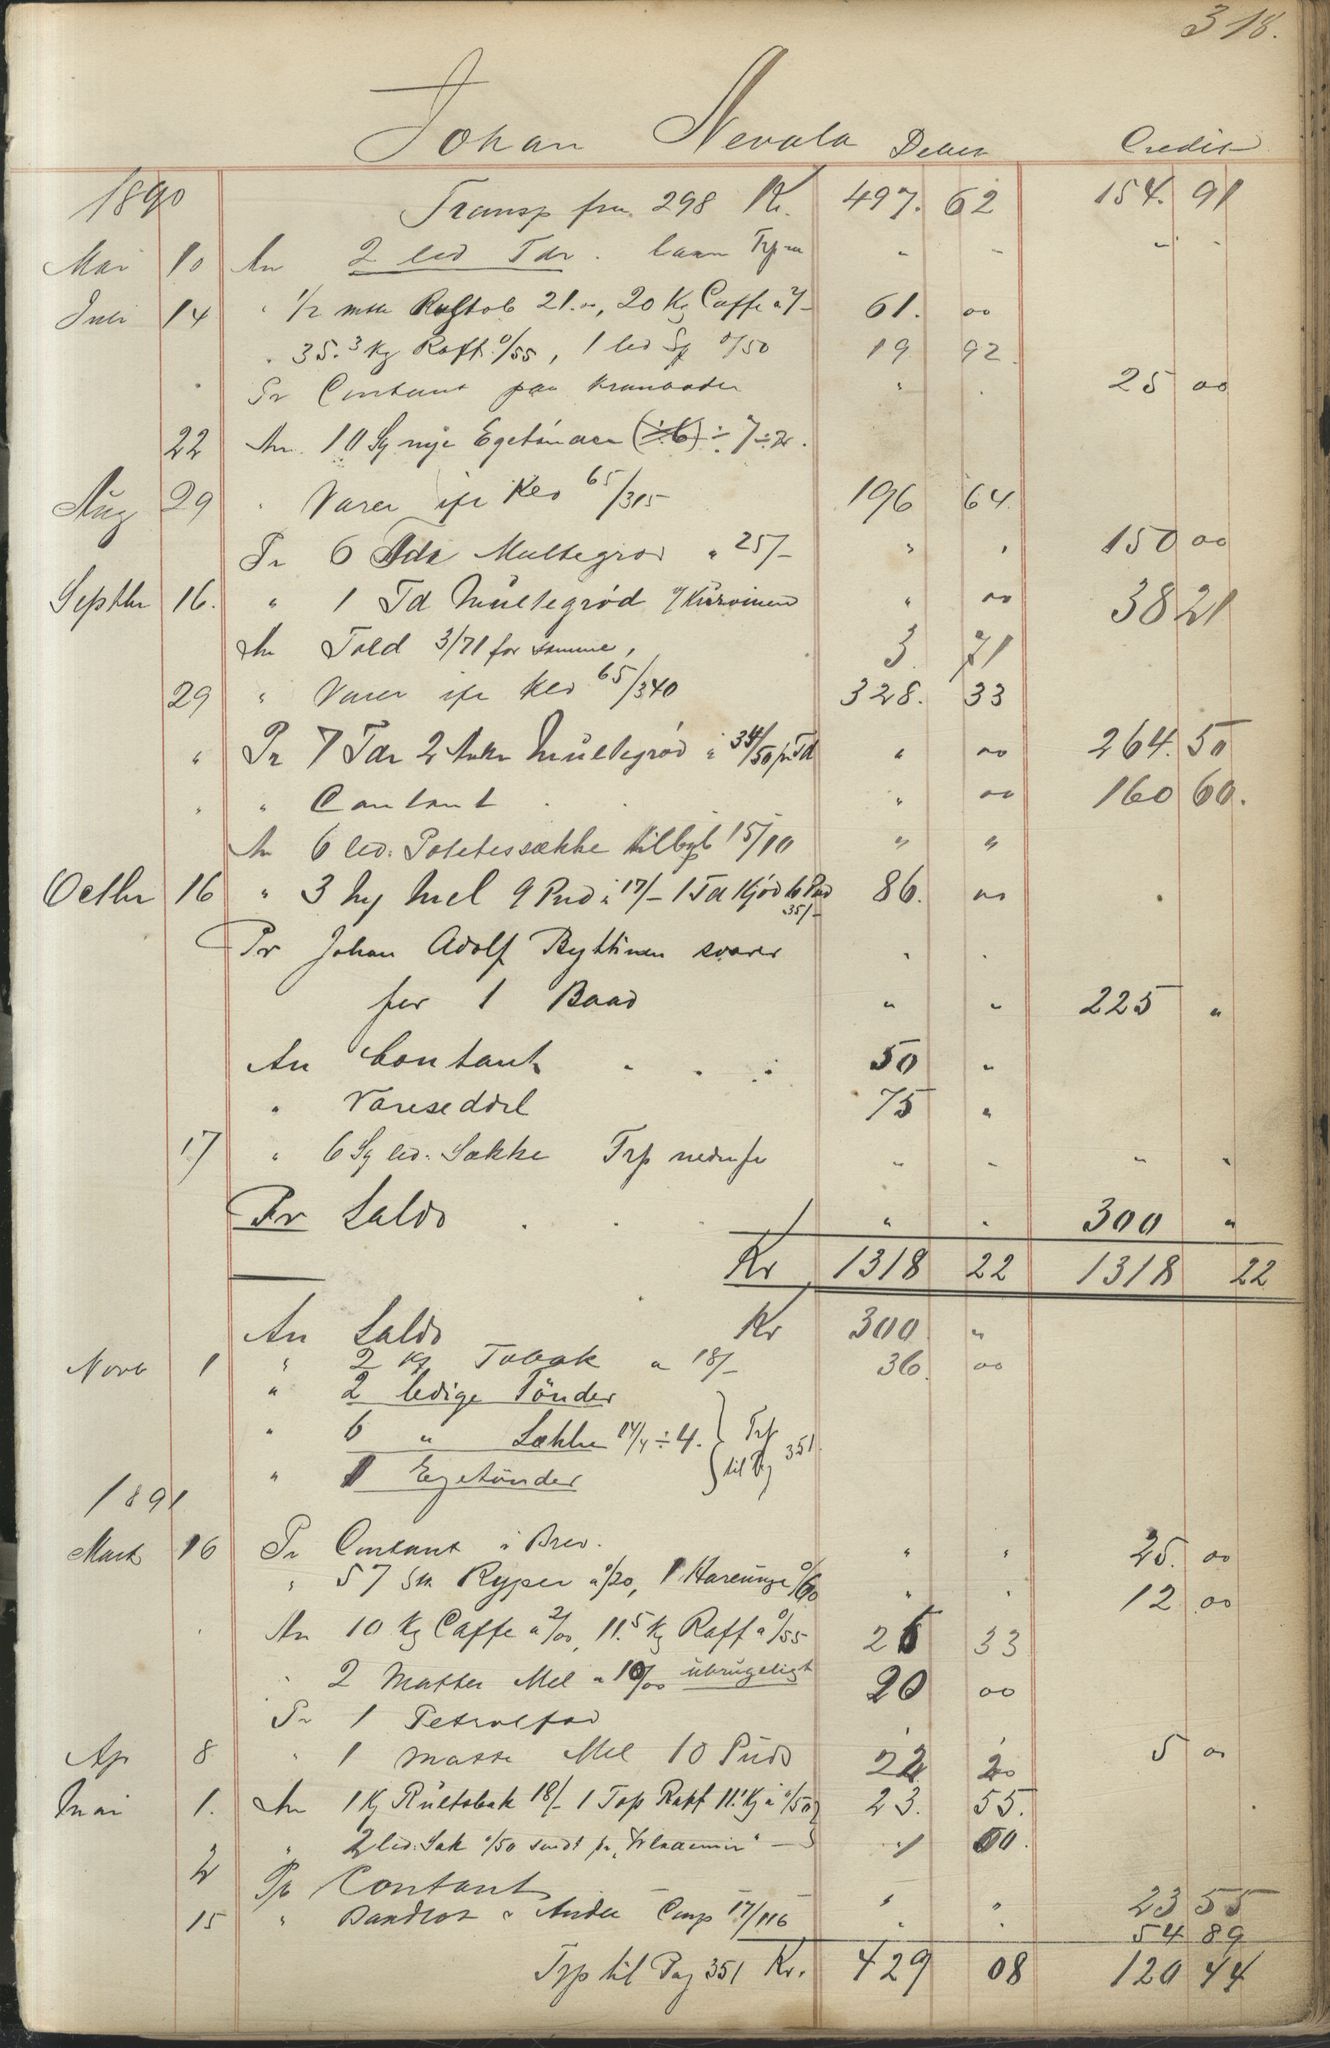 318.
Johan Nevala Debet Credit
1890 Transp fra 298 Kr. 497. 62 154. 91
Mai 10 An 2 led Tdr. " - " -
Juli 14 " 1/2 mtt Rugtob 21.00, 20 Kg Caffe a 2/- 61. 00
" 35.3 Kg Raff. 0/55, 1 led Sg 0/50 19 92
" Pr Contant paa " . 25 00
22 An 10 Sg nye Egetönder (÷6) ÷ 7 ÷ 2.
Aug 29 " Varer ifr Kld 65/315 196 64
Pr 6 Tdr Multegrød a 25/- " . 150 00
Septbr 16. " 1 Td Multegrød " 00 38 21
An Told 3/71 for samme, 3. 71
29 " Varer ifr Kld 65/340 328. 33
" Pr 7 Tdr 2 Ankr Multegrød a 34/50 pr Td " 00 264. 50
" " Contant . . " 00 160 60.
An 6 led. Potetessække 15/10 " "
Octbr 16 " 3 Mel 9 Pud a 17/- 1 Td Kjød 6 Pud 35/- 86. 00
Pr Johan Adolf Byttinen svarer " .
for 1 Baad " " 225 "
An Contant . . . 50 "
" Vareseddel 75 "
17 " 6 Sg led. Sække Trp nedenfr " " " "
Pr Saldo . . . " . 300 "
Kr 1318 22 1318 22
An Saldo Kr 300 "
Novb 1 " 2 Kg Tobak a 18/- 36. 00
" 2 ledige Tönder
" 6 " Sække 14/4 ÷ 4. } Trp
" 1 Egetönder til Pag 351.
1891
Marts 16 Pr Contant i Brev. " " 25. 00
" 57 Stk Ryper a 0/20, 1 0/60 " . 12 00
. An 10 Kg Caffe a 2/00, 11.5 Kg Raff a 0/55 26 33
" 2 Matter Mel a 10/00 ubrugeligt 20 00
Pr 1 Petrolfad
Ap 8 " 1 Matte Mel 10 Puds 22 20 5 00
Mai 1. An 1 Kg Rultobak 18/- 1 Top Raff 11.1 Kg a 0/50 23. 55.
" 2 led. Sæk 0/50 sendt pr. "Wladimir" — 1 00.
2 Pr Contant " " 23 55
15 " & Comp 17/116 " " 54 89
Trp til Pag 351 Kr. 429 08 120 44